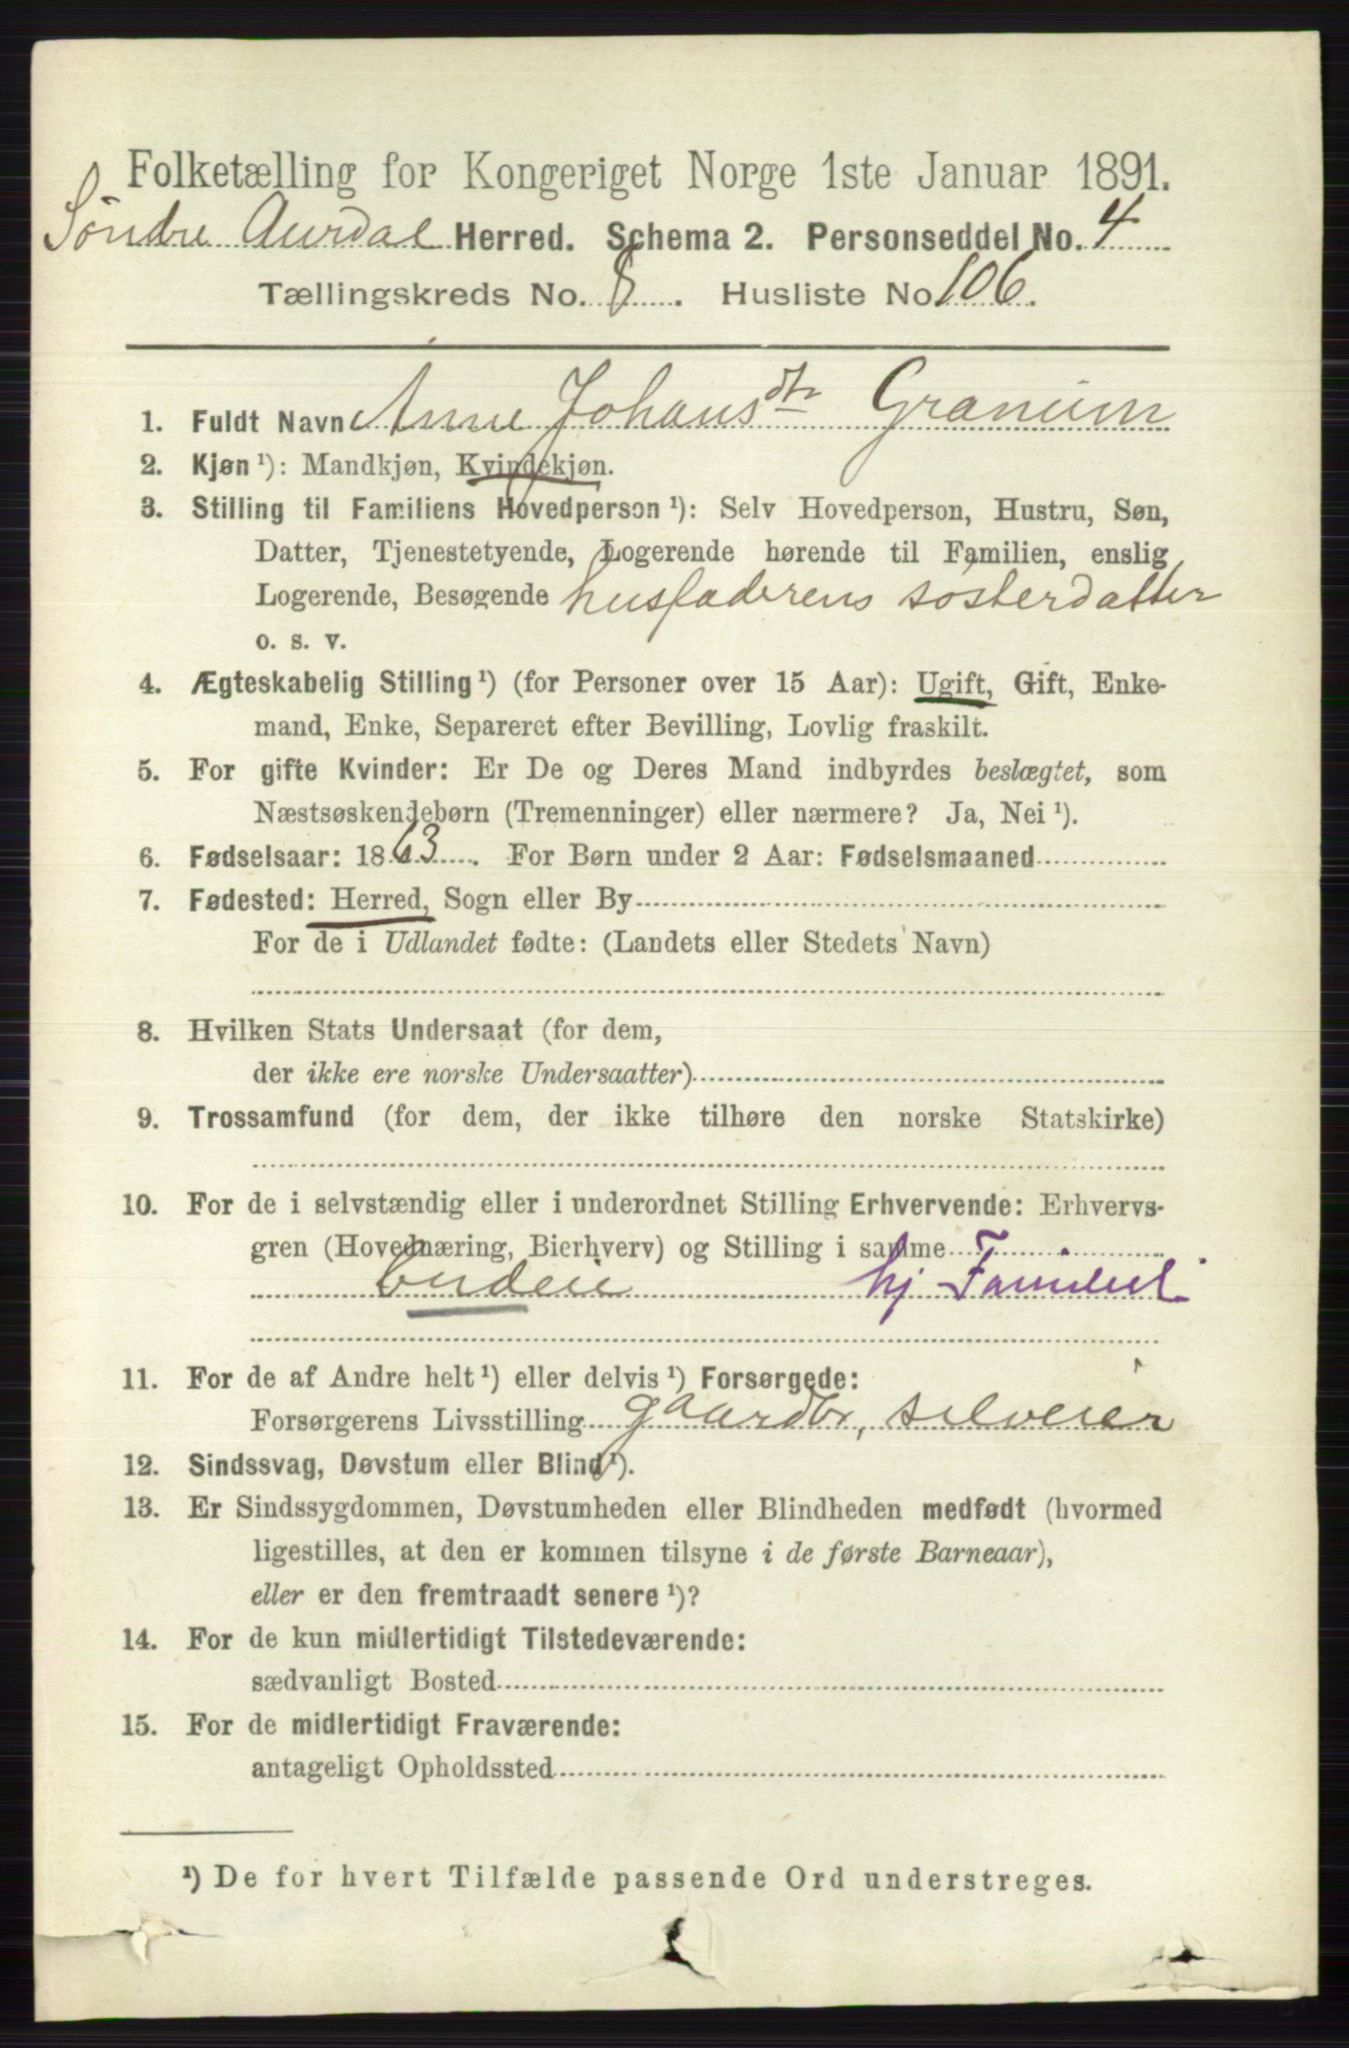 Folketælling for Kongeriget Norge 1ste Januar 1891.
Søndre Aurdal Herred. Schema 2. Personseddel No. 4
Tællingskreds No. 8. Husliste No 106.
1. Fuldt Navn Anne Johansdtr Granum
2. Kjøn ¹): Mandkjøn, Kvindekjøn.
3. Stilling til Familiens Hovedperson ¹): Selv Hovedperson, Hustru, Søn,
Datter, Tjenestetyende, Logerende hørende til Familien, enslig
Logerende, Besøgende husfaderens søsterdatter
o. s. v.
4. Ægteskabelig Stilling ¹) (for Personer over 15 Aar): Ugift, Gift, Enke-
mand, Enke, Separeret efter Bevilling, Lovlig fraskilt.
5. For gifte Kvinder: Er De og Deres Mand indbyrdes beslægtet, som
Næstsøskendebørn (Tremenninger) eller nærmere? Ja, Nei ¹).
6. Fødselsaar: 1863. For Børn under 2 Aar: Fødselsmaaned
7. Fødested: Herred, Sogn eller By
For de i Udlandet fødte: (Landets eller Stedets Navn)
8. Hvilken Stats Undersaat (for dem,
der ikke ere norske Undersaatter)
9. Trossamfund (for dem, der ikke tilhøre den norske Statskirke)
10. For de i selvstændig eller i underordnet Stilling Erhvervende: Erhvervs-
gren (Hovednæring, Bierhverv) og Stilling i samme
budeie hj Familiel
11. For de af Andre helt ¹) eller delvis ¹) Forsørgede:
Forsørgerens Livsstilling gaardbr, selveier
12. Sindssvag, Døvstum eller Blind ¹).
13. Er Sindssygdommen, Døvstumheden eller Blindheden medfødt (hvormed
ligestilles, at den er kommen tilsyne i de første Barneaar),
eller er den fremtraadt senere ¹)?
14. For de kun midlertidigt Tilstedeværende:
sædvanligt Bosted
15. For de midlertidigt Fraværende:
antageligt Opholdssted
¹) De for hvert Tilfælde passende Ord understreges.